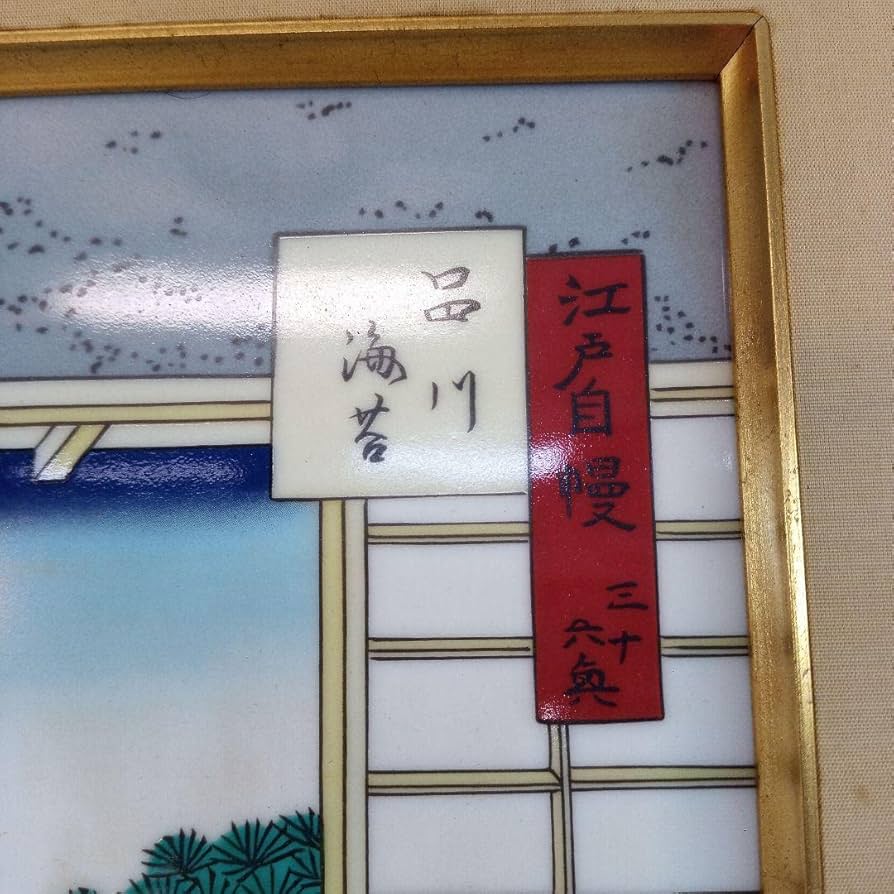 江戸自慢
三十
六興
品川
海苔